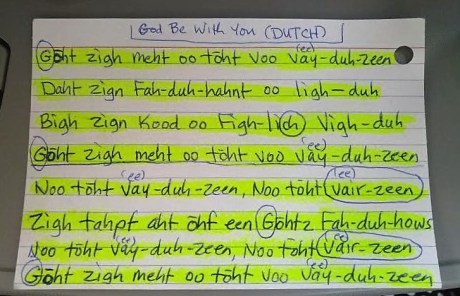 God Be With You (DUTCH)
Gōht zigh meht oo tōht Voo Vay(ee)-duh-zeen
Daht zign Fah-duh-hahnt oo ligh-duh
Bigh zign Kood oo Figh-lich Vigh-duh
Gōht zigh meht oo tōht Voo Vay(ee)-duh-zeen
Noo tōht Vay(ee)-duh-zeen, Noo tōht Vair(ee)-zeen
Zigh tahpf aht ōhf een Gōhtz Fah-duh-hows
Noo tōht Vay(ee)-duh-zeen, Noo tōht Vair(ee)-zeen
Gōht zigh meht oo tōht Voo Vay(ee)-duh-zeen